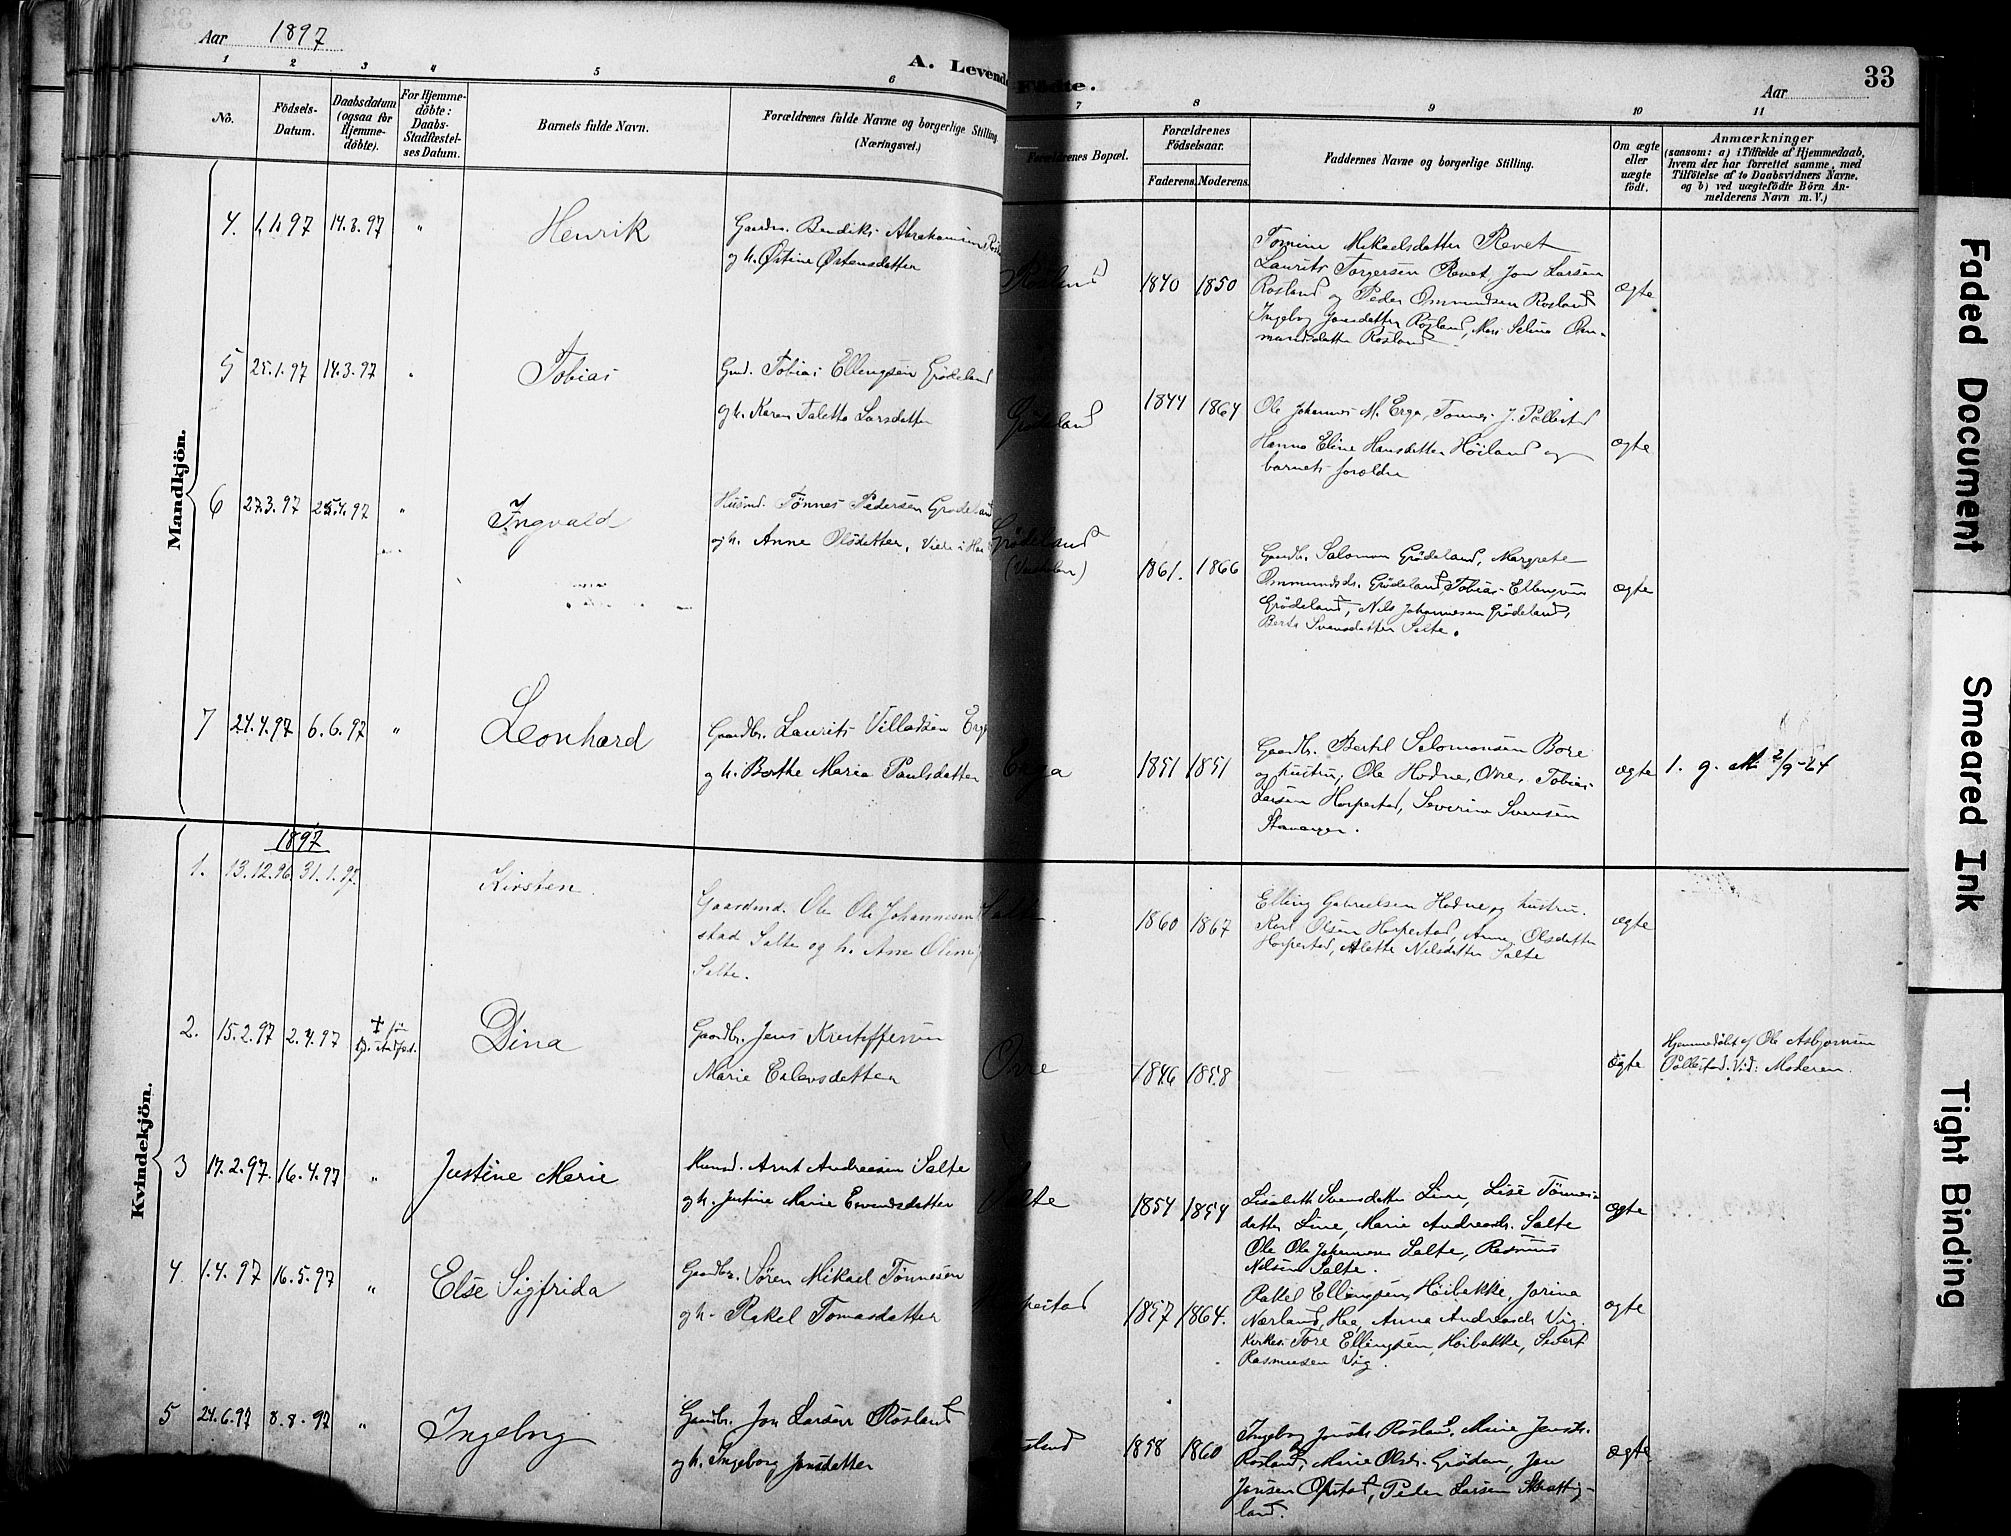 Aar 1897
A. Levende Fødte.
Aar
33
1 2 3 4 5 6 7 8 9 10 11
No.
Födsels-Datum.
Daabsdatum (ogsaa for Hjemme-döbte).
For Hjemme-döbte: Daabs-Stadfæstel-ses Datum.
Barnets fulde Navn.
Forældrenes fulde Navne og borgerlige Stilling (Næringsvei.)
Forældrenes Bopæl.
Forældrenes Födselsaar.
Faderens. Moderens.
Faddernes Navne og borgerlige Stilling.
Om ægte eller uægte födt.
Anmærkninger
(saasom: a) i Tilfælde af Hjemmedaab, hvem der har forrettet samme, med Tilföielse af to Daabsvidners Navne, og b) ved uægtefödte Börn An-melderens Navn m. V.)
Mandkjön.
4. 1.1.97 14.3.97 " Henrik
Bendiks Abrahamsen
og h. Østine Østensdatter
Rosland 1840 1850
Tomine Mikaelsdatter Revet
Laurits Torgersen Revet, Jon Larsen
Rosland og Peder Ommundsen Rosland
Ingeborg Jonsdatter Rosland, Om-
mundsdatter Rosland
ægte
5 25.1.97 14.3.97 " Tobias
Gmd. Tobias Ellengsen Grödeland
og h. Karen Taletta Larsdatter
Grödeland 1844 1864
Ole Johannes M. Erga, Tonnes J. Pollestad
Hanna Eline Hansdatter Höiland og
barnets forældre
ægte
6 27.3.97 25.4.97 " Ingvald
Husmd. Tönnes Pedersen Grödeland
og h. Anne Olsdatter,
Grödeland
1861. 1866
Gaardbr. Salomon Grödeland, Margrete
Ommundsdr. Grödeland, Tobias Ellengsen
Grödeland, Nils Johannesen Grödeland,
Berta Svensdatter Salte.
ægte
7 24.4.97 6.6.97 " Leonhard
Gaardbr. Laurits Villadsen Erga
og h. Berthe Maria Paulsdatter
Erga 1851 1851
Gaardbr. Bertel Salomonsen Bore
og hustru, Ole Hodne, Orre, Tobias
Larsen Horpestad, Severine Svensen
Stavanger.
ægte 1. g. M 2/9-24
Kvindekjön.
1897
1. 13.12.96 31.1.97. Kirsten.
Gaardmd. Ole Ole Johannesen
stad Salte og h. Ane Oline
Salte.
Salte. 1860 1867
Elling Gabrielsen Hodne og hustru.
Karl Olsen Horpestad, Anne Olsdatter
Horpestad, Alette Nilsdatter Salte
ægte
2. 15.2.97 2.4.97 † för D. stadfæst. Dina
Gaardbr. Jens Kristoffersen
Marie Erlensdatter
Orre 1846 1858
ægte Hjemmedöbt af Ole Asbjørnsen
Pollestad. Vid: Moderen.
3 17.2.97. 16.4.97 " Justine Marie
Husmd. Arnt Andreasen Salte
og h. Justine Marie Ervendsdatter
Salte 1854 1854
Lisabeth Svensdatter Line, Lise Tönnes-
datter Line, Marie Andreasdr. Salte
Ole Ole Johannesen Salte, Rasmus
Nilsen Salte.
ægte
4 1.4.97 16.5.97 " Else Sigfrida
Gaardbr. Sören Mikael Tönnesen
og h. Rakel Tomasdatter
1857 1864.
Rakel Ellingsen, Höibakke, Jorina
Nærland, Haa, Anna Andreasdr. Vig.
Tore Ellingsen, Höibakke, Sivert
Rasmusen Vig.
ægte
5 24.6.97 8.8.97 " Ingeborg
Gaardbr. Jon Larsen Rosland
og h. Ingeborg Jonsdatter
1858 1860
Ingeborg Jonsdr. Rosland, Marie Jensdr.
Rosland, Marie Olsdr. Gröden, Jon
Jonsen Opstad, Peder Larsen
land.
ægte
Faded Document
Smeared Ink
Tight Binding